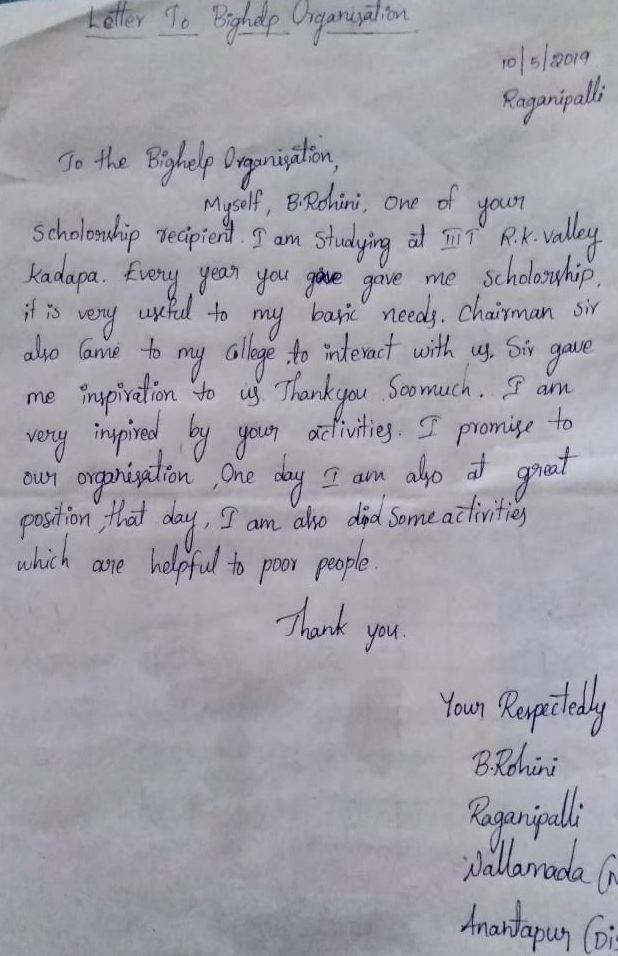 Letter To Bighelp Organisation
10/5/2019
Raganipalli
To the Bighelp Organisation,
Myself, B.Rohini, one of your
Scholorship recipient. I am Studying at IIIT R.K. valley
kadapa. Every year you gave gave me scholorship.
it is very useful to my basic needs. Chairman sir
also Came to my College to interact with us. Sir gave
me inspiration to us. Thankyou Soomuch. I am
very inspired by your activities. I promise to
our organisation, One day I am also at great
position, that day, I am also did Some activities
which are helpful to poor people.
Thank you.
Your Respectedly
B.Rohini
Raganipalli
Nallamada (
Anantapur (Dis